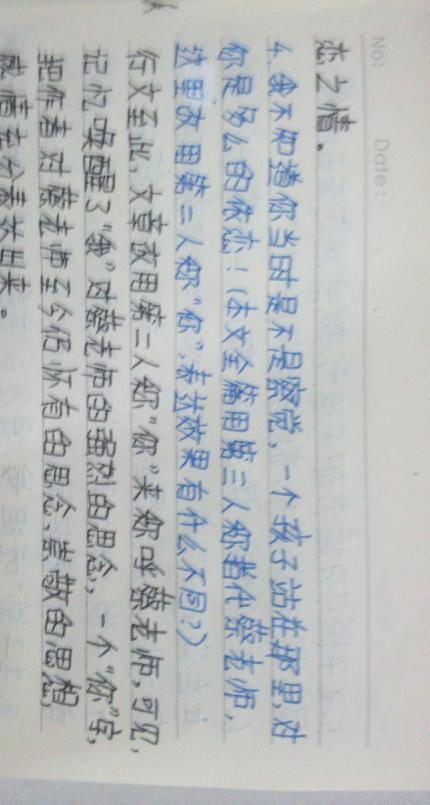 No:
Date:
恋之情。
4. 我不知道你当时是不是察觉,一个孩子站在那里,对
你是多么的依恋!(本文全篇用第三人称指代蔡老师,
这里改用第二人称“你”,表达效果有什么不同?)
行文至此,文章改用第二人称“你”来称呼蔡老师,可见,
记忆唤醒了“我”对蔡老师的深刻的思念,一个“你”字,
把作者对蔡老师至今仍怀有的思念,崇敬的思想
感情充分表达出来。